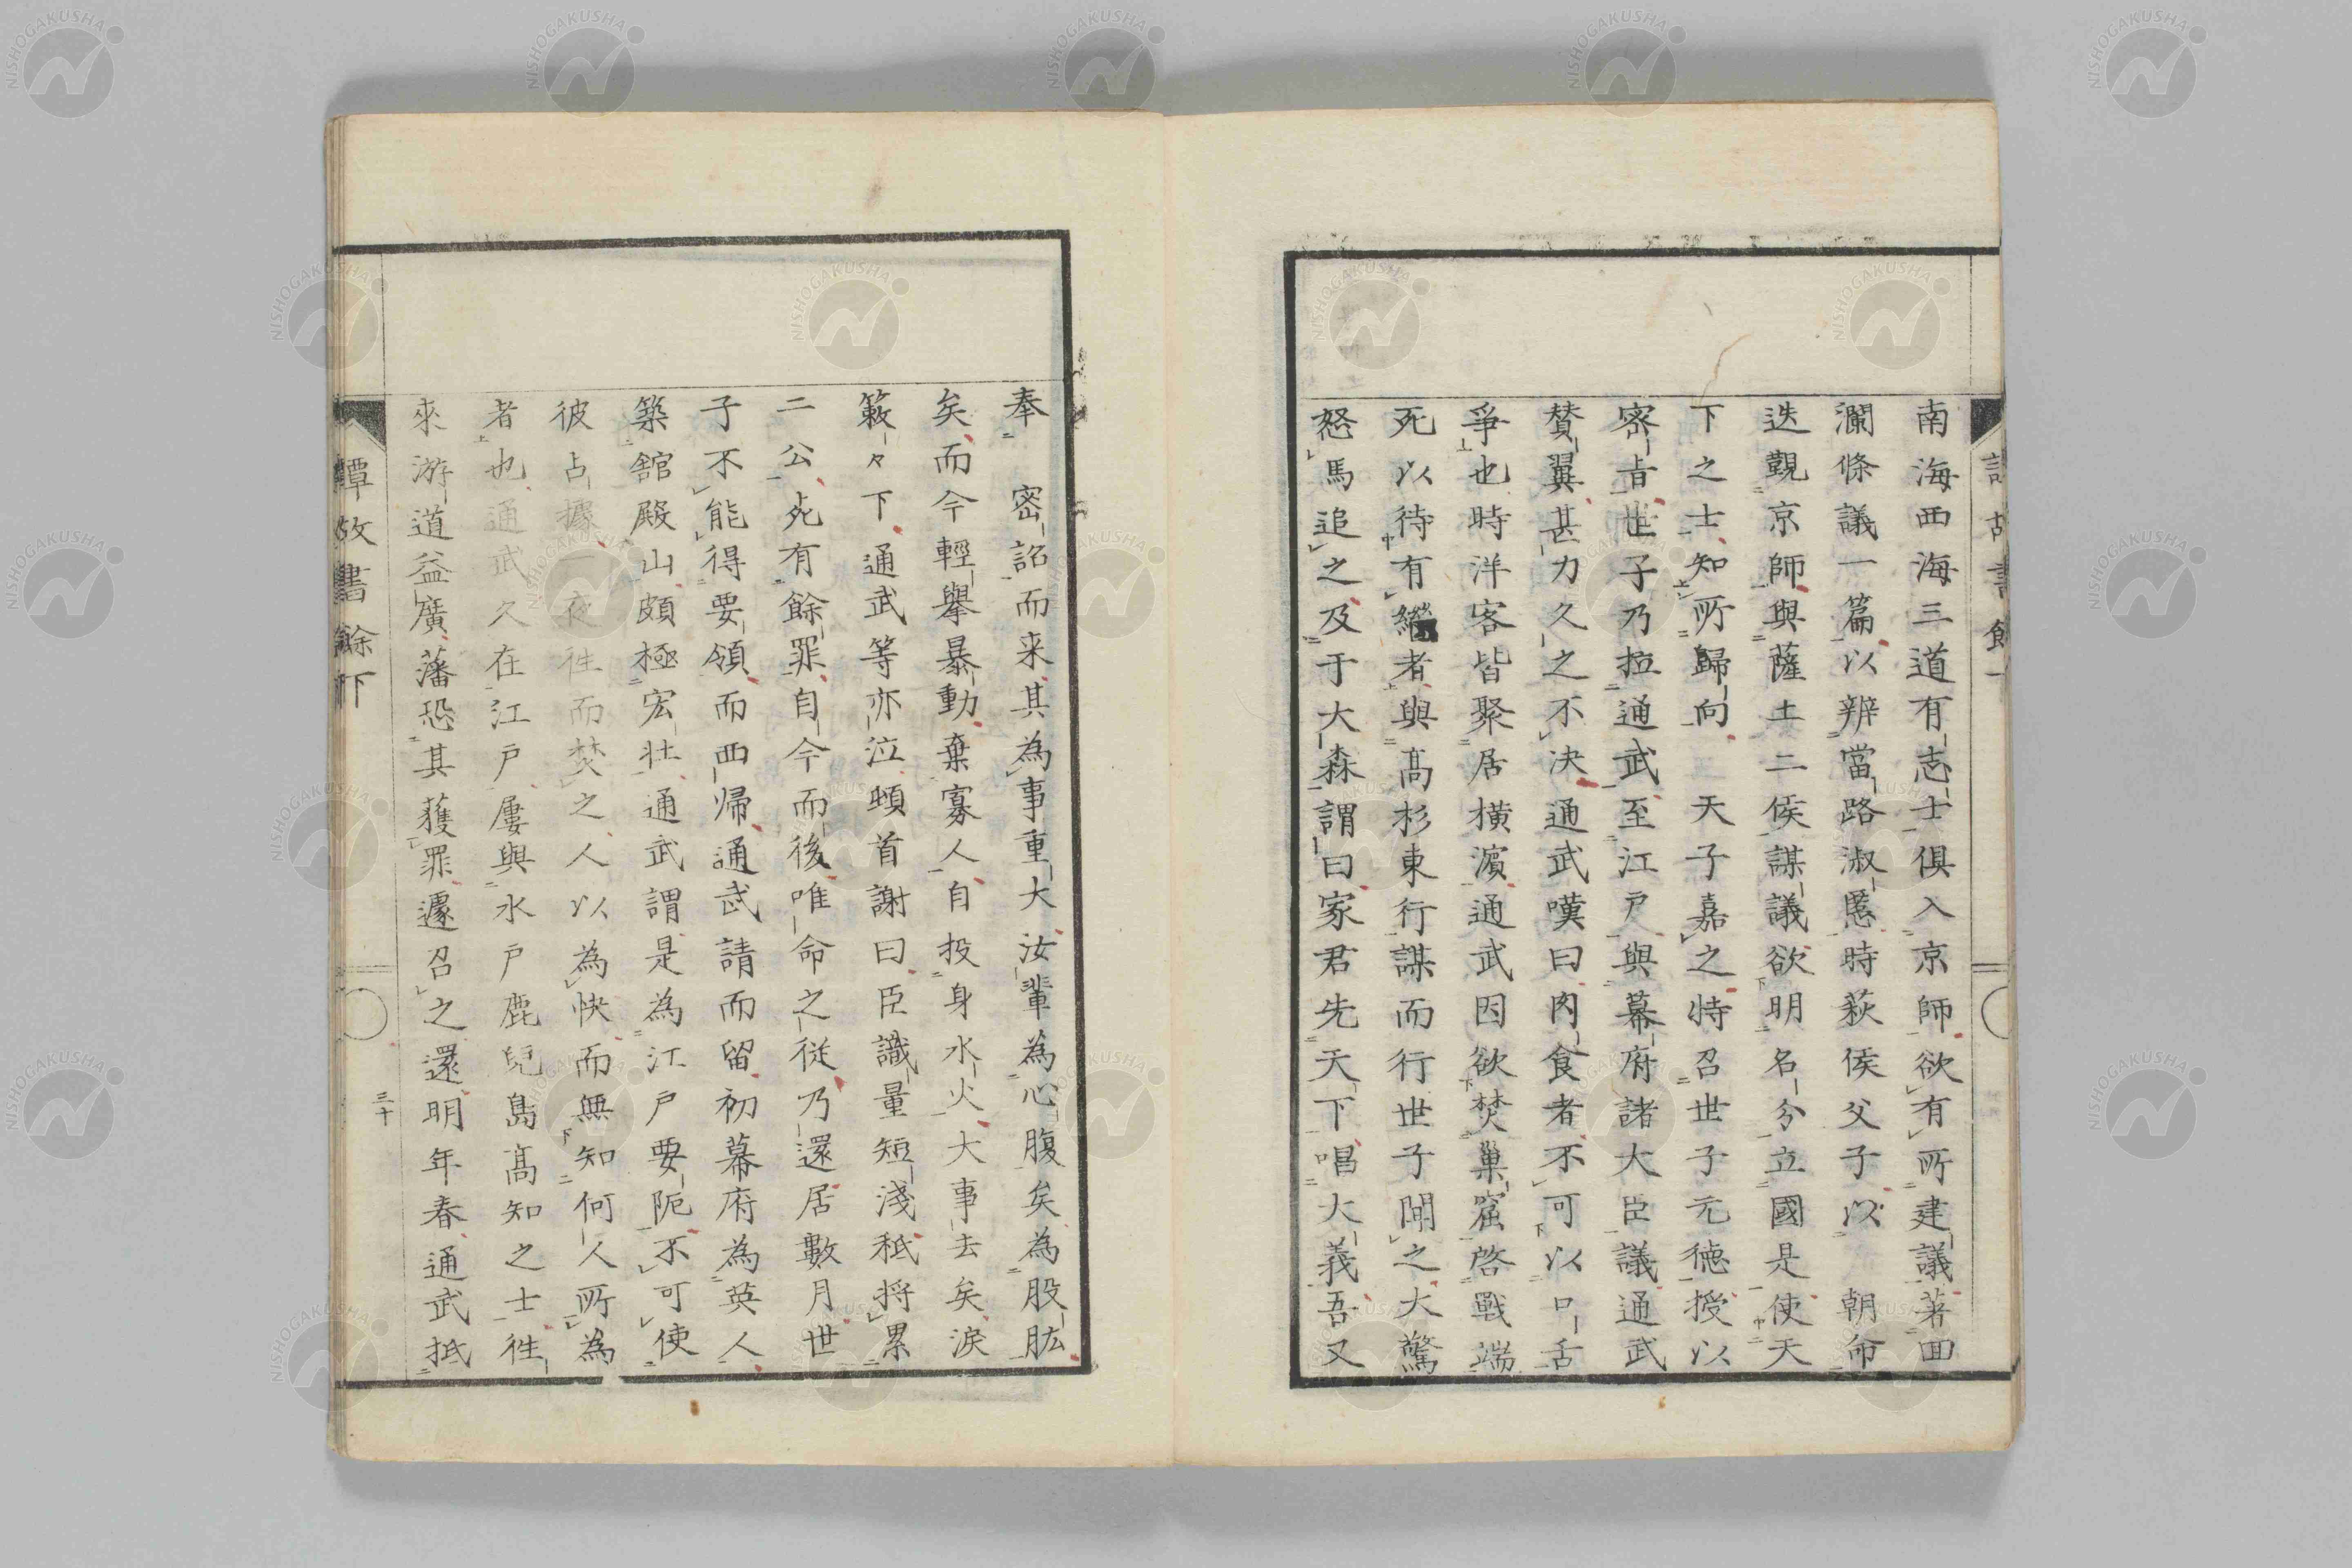 南海西海三道有志士俱入京師欲有所建議著回
瀾條議一篇以辨當路淑慝時萩侯父子以 朝命
迭觀京師與薩土二侯謀議欲明名分立國是使天
下之士知所歸向 天子嘉之特召世子元德授以
密旨世子乃拉通武至江戶與幕府諸大臣議通武
贊翼甚力久之不決通武嘆曰肉食者不可以口舌
爭也時洋客皆聚居橫濵通武因欲焚巢窟啓戰端
死以待有繼者與髙杉東行謀而行世子聞之大驚
怒馬追之及于大森謂曰家君先天下唱大義吾又
奉 密詔而来其為事重大汝輩為心腹矣為股肱
矣而今輕舉暴動棄寡人自投身水火大事去矣淚
簌々下通武等亦泣頓首謝曰臣識量短淺秪將累
二公死有餘罪自今而後唯命之從乃還居數月世
子不能得要領而西帰通武請而留初幕府為英人
築舘殿山頗極宏壯通武謂是為江戶要阨不可使
彼占據一夜徃而焚之人以為快而無知何人所為
者也通武久在江戶屢與水戶鹿兒島髙知之士徃
來游道益廣藩恐其獲罪遽召之還明年春通武抵
譚故書餘下
三十
NISHOGAKUSHA